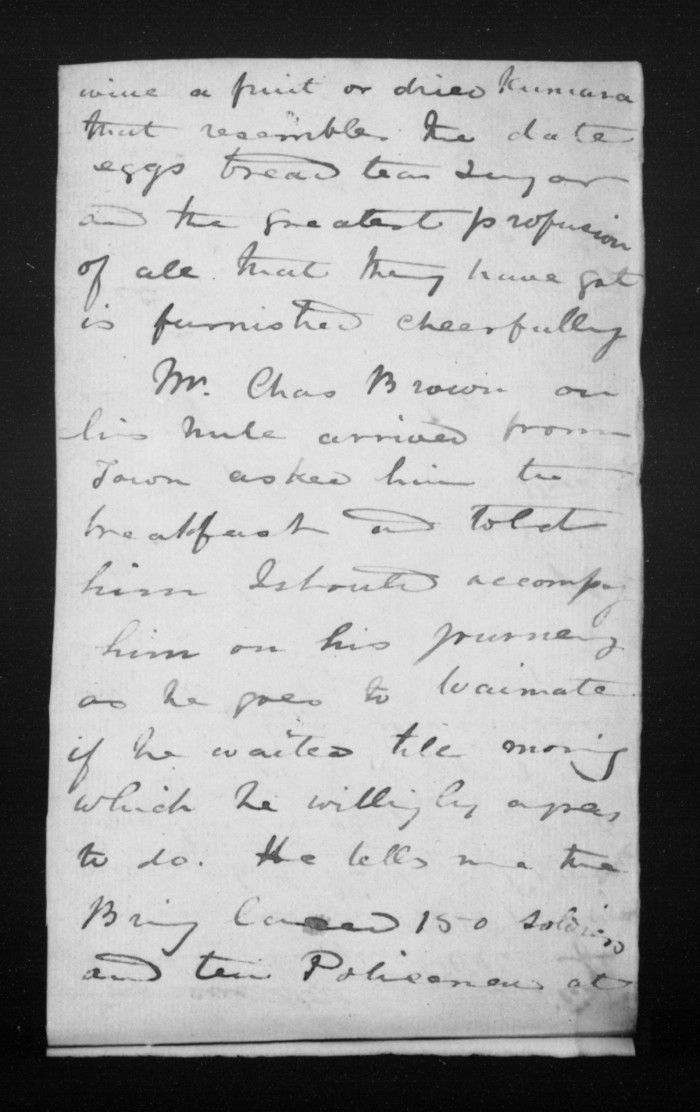 wine a fruit or dried Kumara
that resembles the date
eggs bread tea Sugar
and the greatest profusion
of all that they have got
is furnished cheerfully
Mr. Chas Brown on
his mule arrived from
Town asked him to
breakfast and told
him I should accompy
him on his journey
as he goes to Waimate
if he waited till morng
which he willigly agrees
to do. He tells me the
Brig landed 150 soldiers
and ten Policemen at